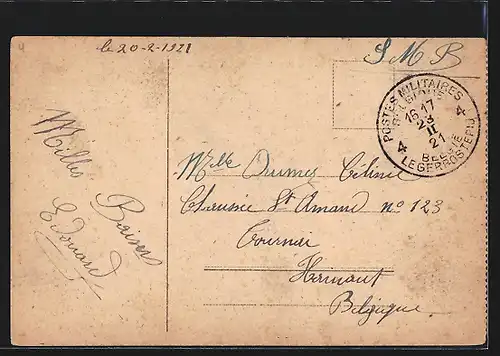 le 20-2-1921
S M B
POSTES MILITAIRES
BELGIQUE
15-17
23
II
21
4 4
BELGIE
LEGERPOSTERIJ
Milles
Baisers
Edouard
Melle Dumez Céline
Chaussée St Amand n° 123
Tournai
Hainaut
Belgique